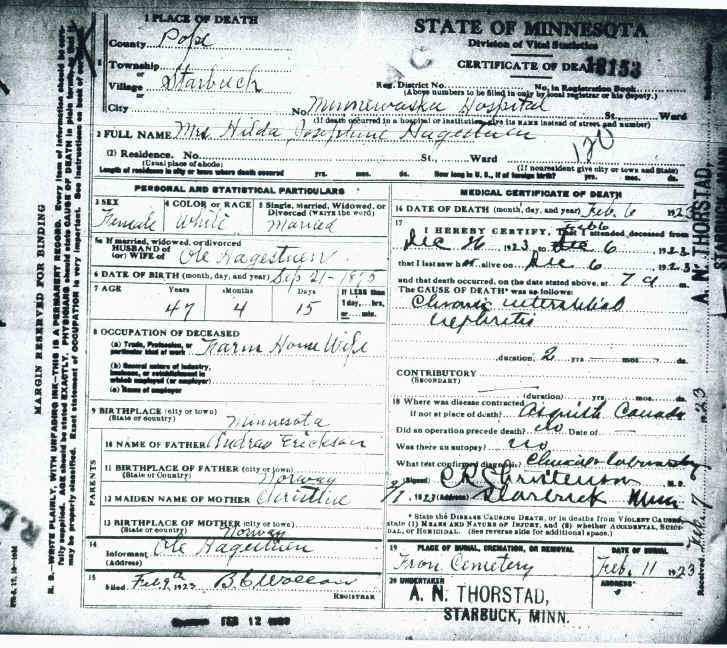 1 PLACE OF DEATH
County Pope
Township
or
Village Starbuck
or
City
STATE OF MINNESOTA
Division of Vital Statistics
CERTIFICATE OF DEATH 18153
Reg. District No. No. in Registration Book
(Above numbers to be filed in only by local registrar or his deputy.)
No. Minnewaska Hospital St., Ward
(If death occurred in a hospital or institution, give its NAME instead of street and number)
2 FULL NAME Mrs. Hilda Josephine Hagestuen
120
(2) Residence. No. St., Ward
(Usual place of abode) (If nonresident give city or town and State)
Length of residence in city or town where death occurred yrs. mos. ds. How long in U. S., if of foreign birth? yrs. mos. ds.
PERSONAL AND STATISTICAL PARTICULARS
3 SEX
Female
4 COLOR OR RACE
White
5 Single, Married, Widowed, or
Divorced (WRITE the word)
Married
5a If married, widowed, or divorced
HUSBAND of
(or) WIFE of Ole Hagestuen
6 DATE OF BIRTH (month, day, and year) Sep 21-1875
7 AGE Years Months Days If LESS than
1 day, hrs.
or min.
47 4 15
8 OCCUPATION OF DECEASED
(a) Trade, Profession, or
particular kind of work Farm House Wife
(b) General nature of industry,
business, or establishment in
which employed (or employer)
(c) Name of employer
9 BIRTHPLACE (city or town)
(State or country) Minnesota
PARENTS
10 NAME OF FATHER Andras Erickson
11 BIRTHPLACE OF FATHER (city or town)
(State or Country) Norway
12 MAIDEN NAME OF MOTHER Christine
13 BIRTHPLACE OF MOTHER (city or town)
(State or country) Norway
14
Informant Ole Hagestuen
(Address)
15
Filed Feb. 9th, 1923 B.C. Wollan
REGISTRAR
FEB 12
MEDICAL CERTIFICATE OF DEATH
16 DATE OF DEATH (month, day, and year) Feb. 6 1923
17
I HEREBY CERTIFY, That I attended deceased from
Dec 26, 1923 to Dec 6, 1923
Feb 6
that I last saw her alive on Dec 6, 1923
and that death occurred, on the date stated above, at 7 a. m.
The CAUSE OF DEATH* was as follows:
Chronic interstitial
nephritis
duration, 2 yrs. mos. ds.
CONTRIBUTORY
(SECONDARY)
(duration) yrs. mos. ds.
18 Where was disease contracted
if not at place of death? Asquith Canada
Did an operation precede death? No Date of
Was there an autopsy? no
What test confirmed diagnosis? Chicago Laboratory
(Signed) C R Christenson M. D.
2/7, 1923 (Address) Starbuck Minn
* State the DISEASE CAUSING DEATH, or in deaths from VIOLENT CAUSES,
state (1) MEANS AND NATURE OF INJURY, and (2) whether ACCIDENTAL, SUICIDAL, OR HOMICIDAL. (See reverse side for additional space.)
19 PLACE OF BURIAL, CREMATION, OR REMOVAL
Fron Cemetery
DATE OF BURIAL
Feb. 11 1923
20 UNDERTAKER
A. N. THORSTAD,
STARBUCK, MINN.
ADDRESS
MARGIN RESERVED FOR BINDING
N. B.—WRITE PLAINLY, WITH UNFADING INK—THIS IS A PERMANENT RECORD. Every item of information should be carefully supplied. AGE should be stated EXACTLY. PHYSICIANS should state CAUSE OF DEATH in plain terms, so that it may be properly classified. Exact statement of OCCUPATION is very important. See instructions on back of
A. N. THORSTAD,
STARBUCK
Received Feb. 7 1923